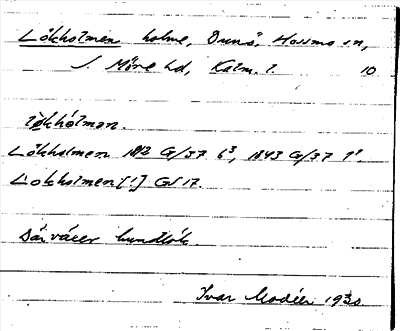 Lökholmen holme, Dunö, Hossmo sn,
S. Möre hd, Kalm. l. 10
lökhólman.
Lökholmen 1812 G/37 6³, 1843 G/37 9¹
Lökholmen [1] GV17.
Där växer hundlök.
Ivar Modéer 1930